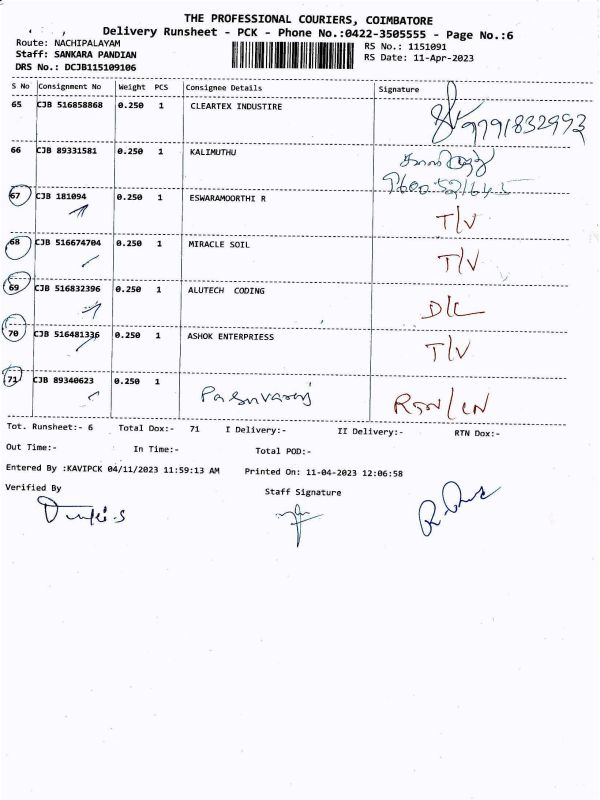 THE PROFESSIONAL COURIERS, COIMBATORE
Delivery Runsheet - PCK - Phone No.:0422-3505555 - Page No.:6
Route: NACHIPALAYAM
Staff: SANKARA PANDIAN
DRS No.: DCJB115109106
RS No.: 1151091
RS Date: 11-Apr-2023
S No Consignment No Weight PCS Consignee Details Signature
65 CJB 516858868 0.250 1 CLEARTEX INDUSTIRE
9791832993
66 CJB 89331581 0.250 1 KALIMUTHU
67 CJB 181094 0.250 1 ESWARAMOORTHI R
T/V
68 CJB 516674704 0.250 1 MIRACLE SOIL
T/V
69 CJB 516832396 0.250 1 ALUTECH CODING
D/L
70 CJB 516481336 0.250 1 ASHOK ENTERPRIESS
T/V
71 CJB 89340623 0.250 1
Tot. Runsheet:- 6 Total Dox:- 71 I Delivery:- II Delivery:- RTN Dox:-
Out Time:- In Time:- Total POD:-
Entered By :KAVIPCK 04/11/2023 11:59:13 AM Printed On: 11-04-2023 12:06:58
Verified By Staff Signature